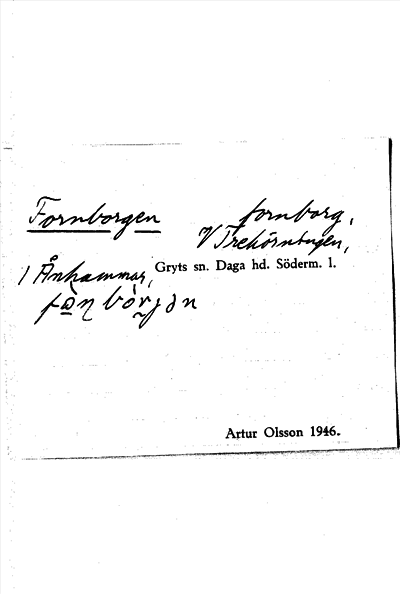 Fornborgen
fornborg,
V Trehörningen,
/ Ånhammar,
Gryts sn. Daga hd. Söderm. l.
Artur Olsson 1946.